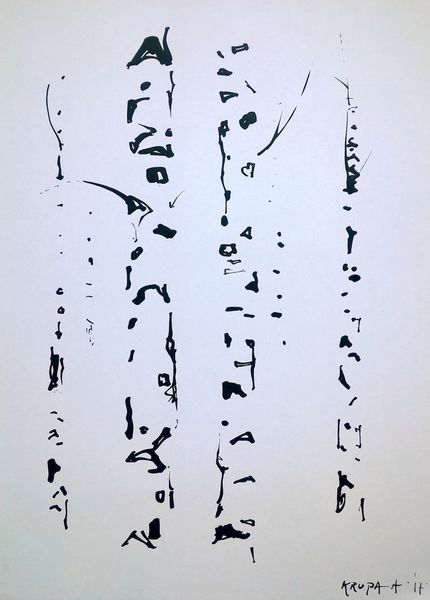 KRUPA A '17